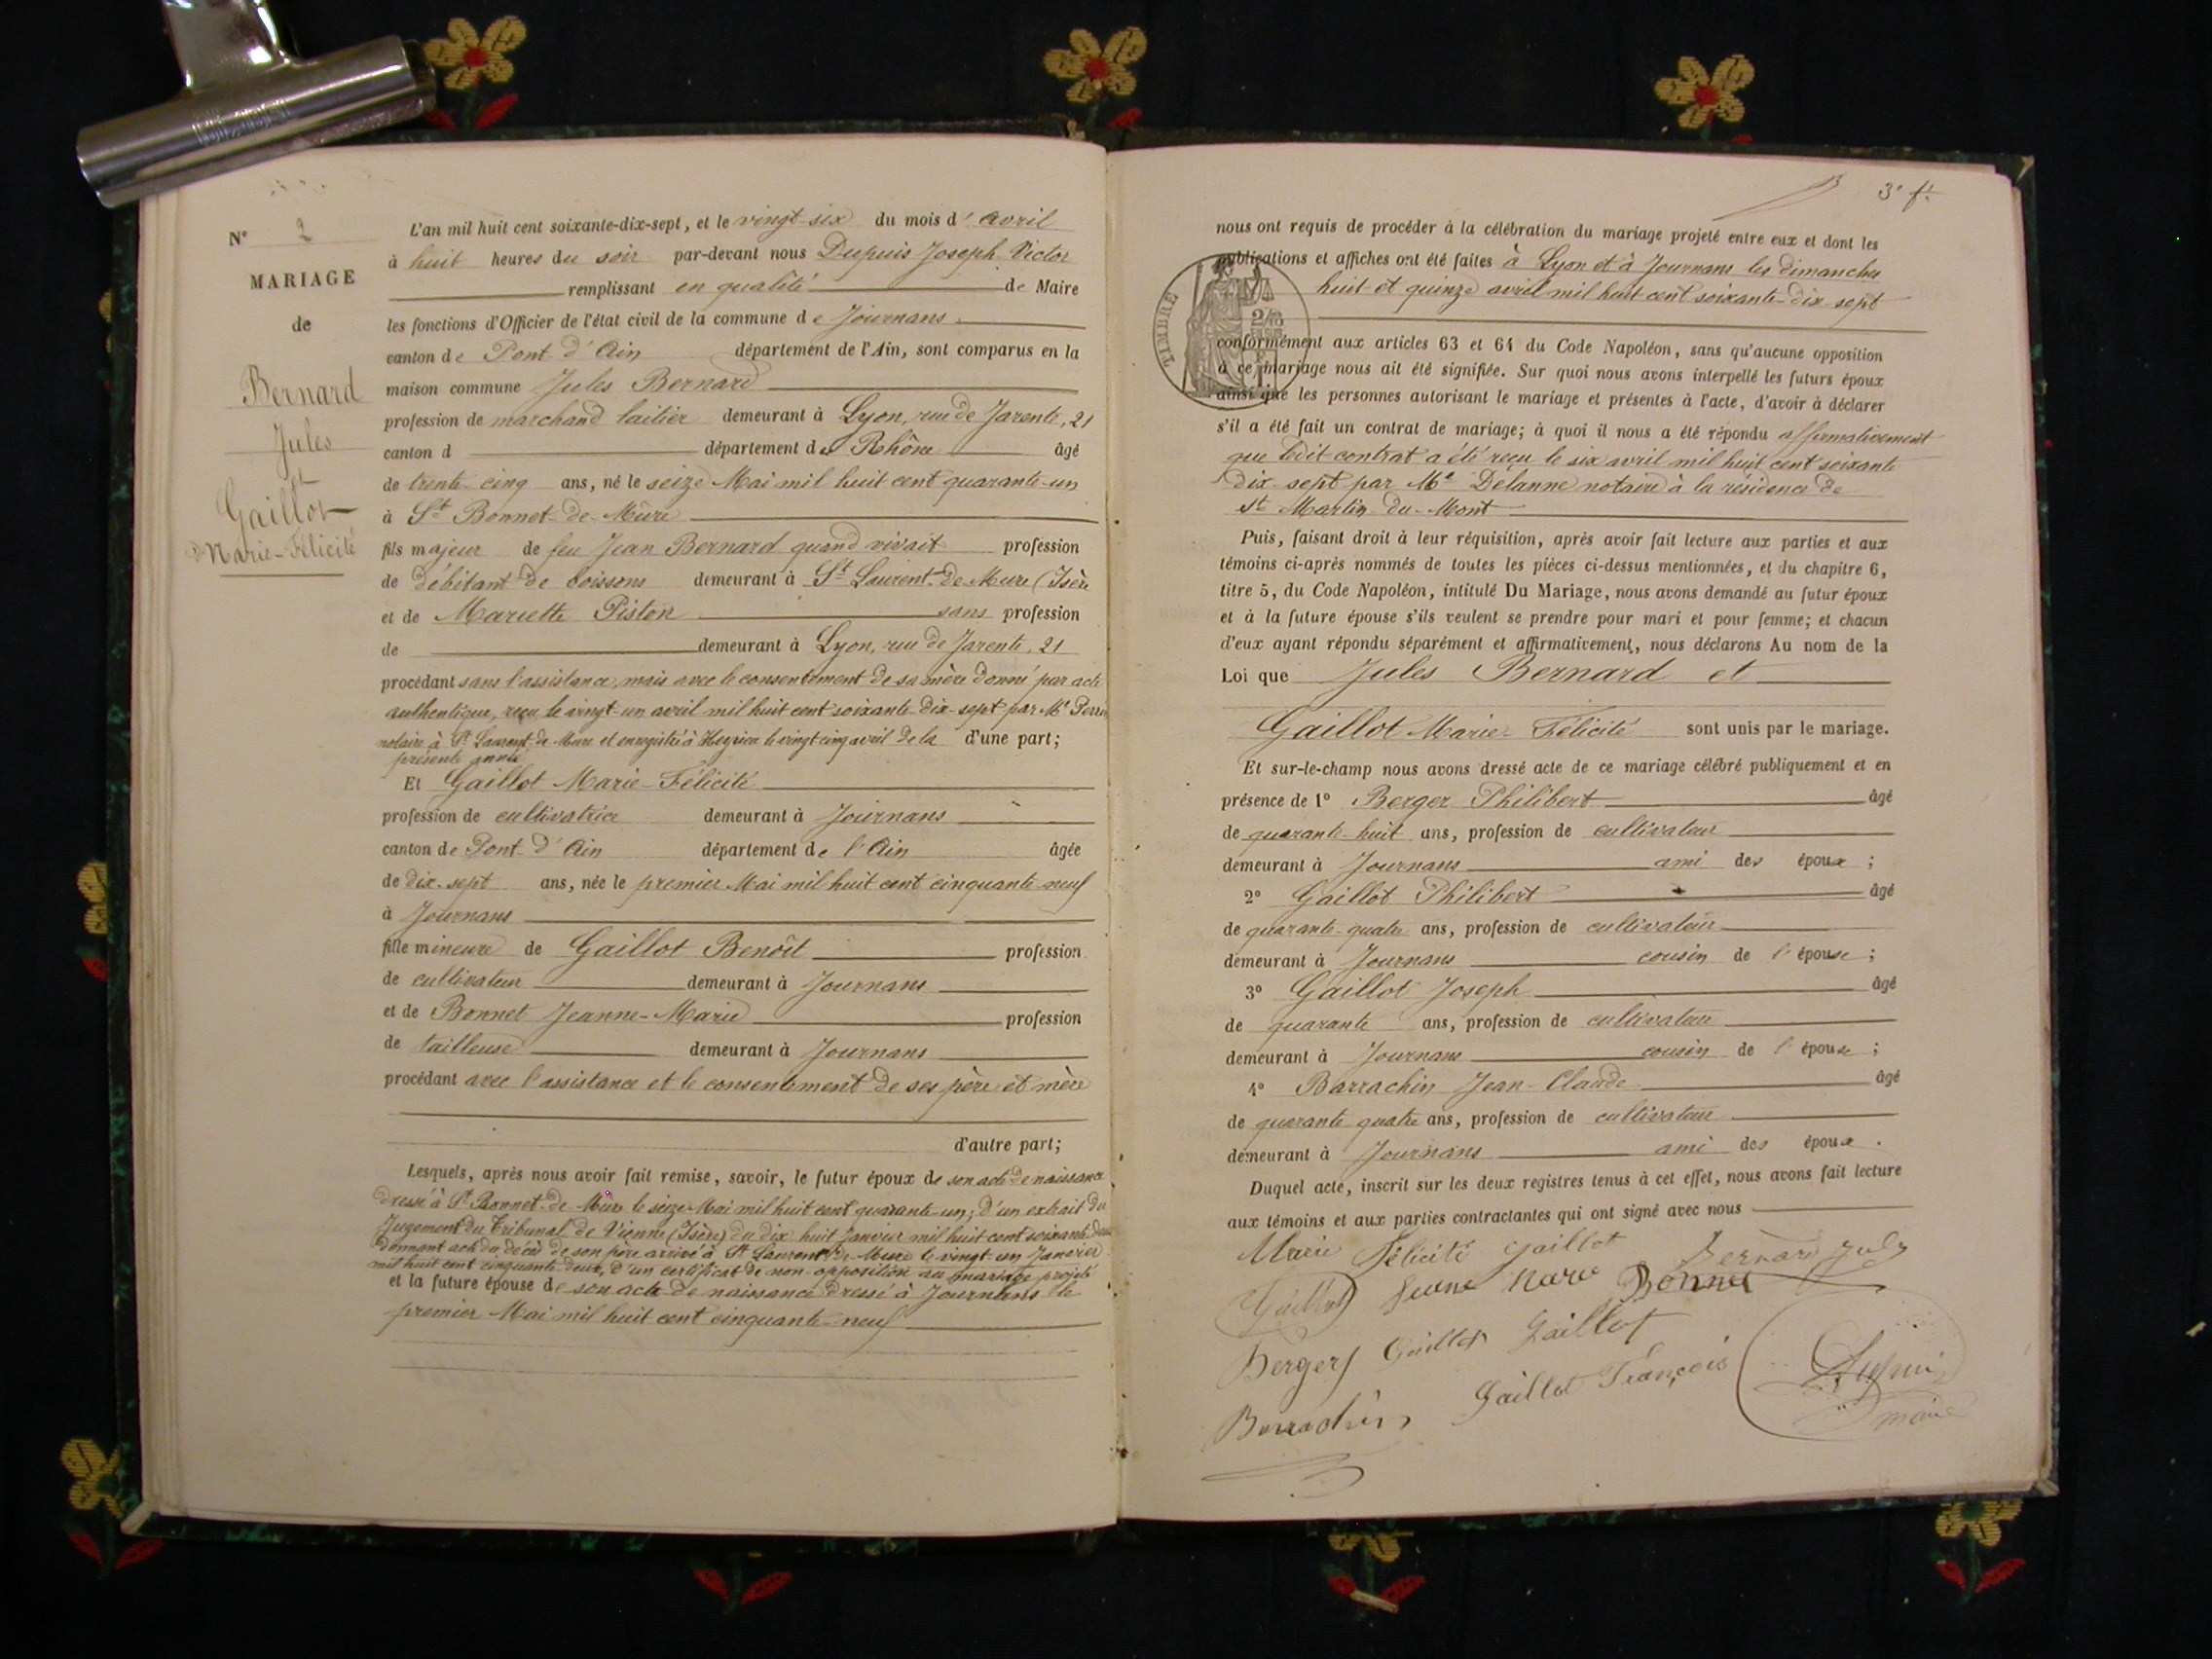 N° 2
MARIAGE
de
Bernard
Jules
et
Gaillot
Marie-Félicité
L'an mil huit cent soixante-dix-sept, et le vingt-six du mois d'avril
à huit heures du soir par-devant nous Dupuis Joseph Victor
remplissant en qualité de Maire
les fonctions d'Officier de l'état civil de la commune de Journans
canton de Pont-d'Ain département de l'Ain, sont comparus en la
maison commune Jules Bernard
profession de marchand laitier demeurant à Lyon, rue de Jarente, 21
canton d département du Rhône âgé
de trente-cinq ans, né le seize Mai mil huit cent quarante-un
à St Bonnet-de-Mûre
fils majeur de feu Jean Bernard quand vivait profession
de débitant de boissons demeurant à St Laurent-de-Mure (Isère
et de Mariette Piston sans profession
de demeurant à Lyon, rue de Jarente, 21
procédant sans l'assistance, mais avec le consentement de sa mère donné par acte
authentique, reçu le vingt-un avril mil huit cent soixante-dix-sept par Me Perrin
notaire à St Laurent-de-Mure et enregistré à Heyrieu le vingt cinq avril de la d'une part;
présente année
Et Gaillot Marie-Félicité
profession de cultivatrice demeurant à Journans
canton de Pont-d'Ain département de l'Ain âgée
de dix-sept ans, née le premier Mai mil huit cent cinquante-neuf
à Journans
fille mineure de Gaillot Benoît profession
de cultivateur demeurant à Journans
et de Bonnet Jeanne-Marie profession
de tailleuse demeurant à Journans
procédant avec l'assistance et le consentement de ses père et mère
d'autre part;
Lesquels, après nous avoir fait remise, savoir, le futur époux de son acte de naissance
dressé à St Bonnet-de-Mure le seize Mai mil huit cent quarante-un; d'un extrait du
Jugement du Tribunal de Vienne (Isère) du dix huit Janvier mil huit cent soixante-deux
donnant acte du décès de son père arrivé à St Laurent-de-Mure le vingt-un Janvier
mil huit cent cinquante-deux, d'un certificat de non-opposition au mariage projeté
et la future épouse de son acte de naissance dressé à Journans le
premier Mai mil huit cent cinquante-neuf
3e ft
nous ont requis de procéder à la célébration du mariage projeté entre eux et dont les
publications et affiches ont été faites à Lyon et à Journans les dimanches
huit et quinze avril mil huit cent soixante-dix-sept
TIMBRE
conformément aux articles 63 et 64 du Code Napoléon, sans qu'aucune opposition
à ce mariage nous ait été signifiée. Sur quoi nous avons interpellé les futurs époux
ainsi que les personnes autorisant le mariage et présentes à l'acte, d'avoir à déclarer
s'il a été fait un contrat de mariage; à quoi il nous a été répondu affirmativement
que ledit contrat a été reçu le six avril mil huit cent soixante
dix-sept par Me Delanne notaire à la résidence de
St Martin-du-Mont
Puis, faisant droit à leur réquisition, après avoir fait lecture aux parties et aux
témoins ci-après nommés de toutes les pièces ci-dessus mentionnées, et du chapitre 6,
titre 5, du Code Napoléon, intitulé Du Mariage, nous avons demandé au futur époux
et à la future épouse s'ils veulent se prendre pour mari et pour femme; et chacun
d'eux ayant répondu séparément et affirmativement, nous déclarons Au nom de la
Loi que Jules Bernard et
Gaillot Marie-Félicité sont unis par le mariage.
Et sur-le-champ nous avons dressé acte de ce mariage célébré publiquement et en
présence de 1° Berger Philibert âgé
de quarante-huit ans, profession de cultivateur
demeurant à Journans ami des époux ;
2° Gaillot Philibert âgé
de quarante-quatre ans, profession de cultivateur
demeurant à Journans cousin de l'épouse ;
3° Gaillot Joseph âgé
de quarante ans, profession de cultivateur
demeurant à Journans cousin de l'épouse ;
4° Barrachin Jean-Claude âgé
de quarante quatre ans, profession de cultivateur
demeurant à Journans ami des époux .
Duquel acte, inscrit sur les deux registres tenus à cet effet, nous avons fait lecture
aux témoins et aux parties contractantes qui ont signé avec nous
Marie Félicité Gaillot Bernard Jules
Gaillot Jeanne Marie Bonnet
Berger Gaillot Gaillot
Barrachin Gaillot François Dupuis
maire